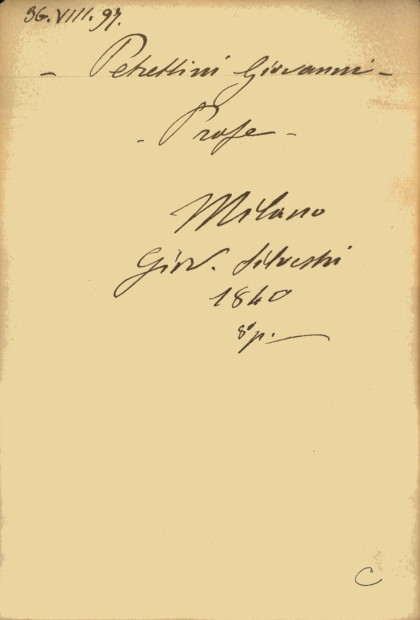 36.VIII.97.
- Petrettini Giovanni -
- Prose -
Milano
Giov. Silvestri
1840
8° p.
C